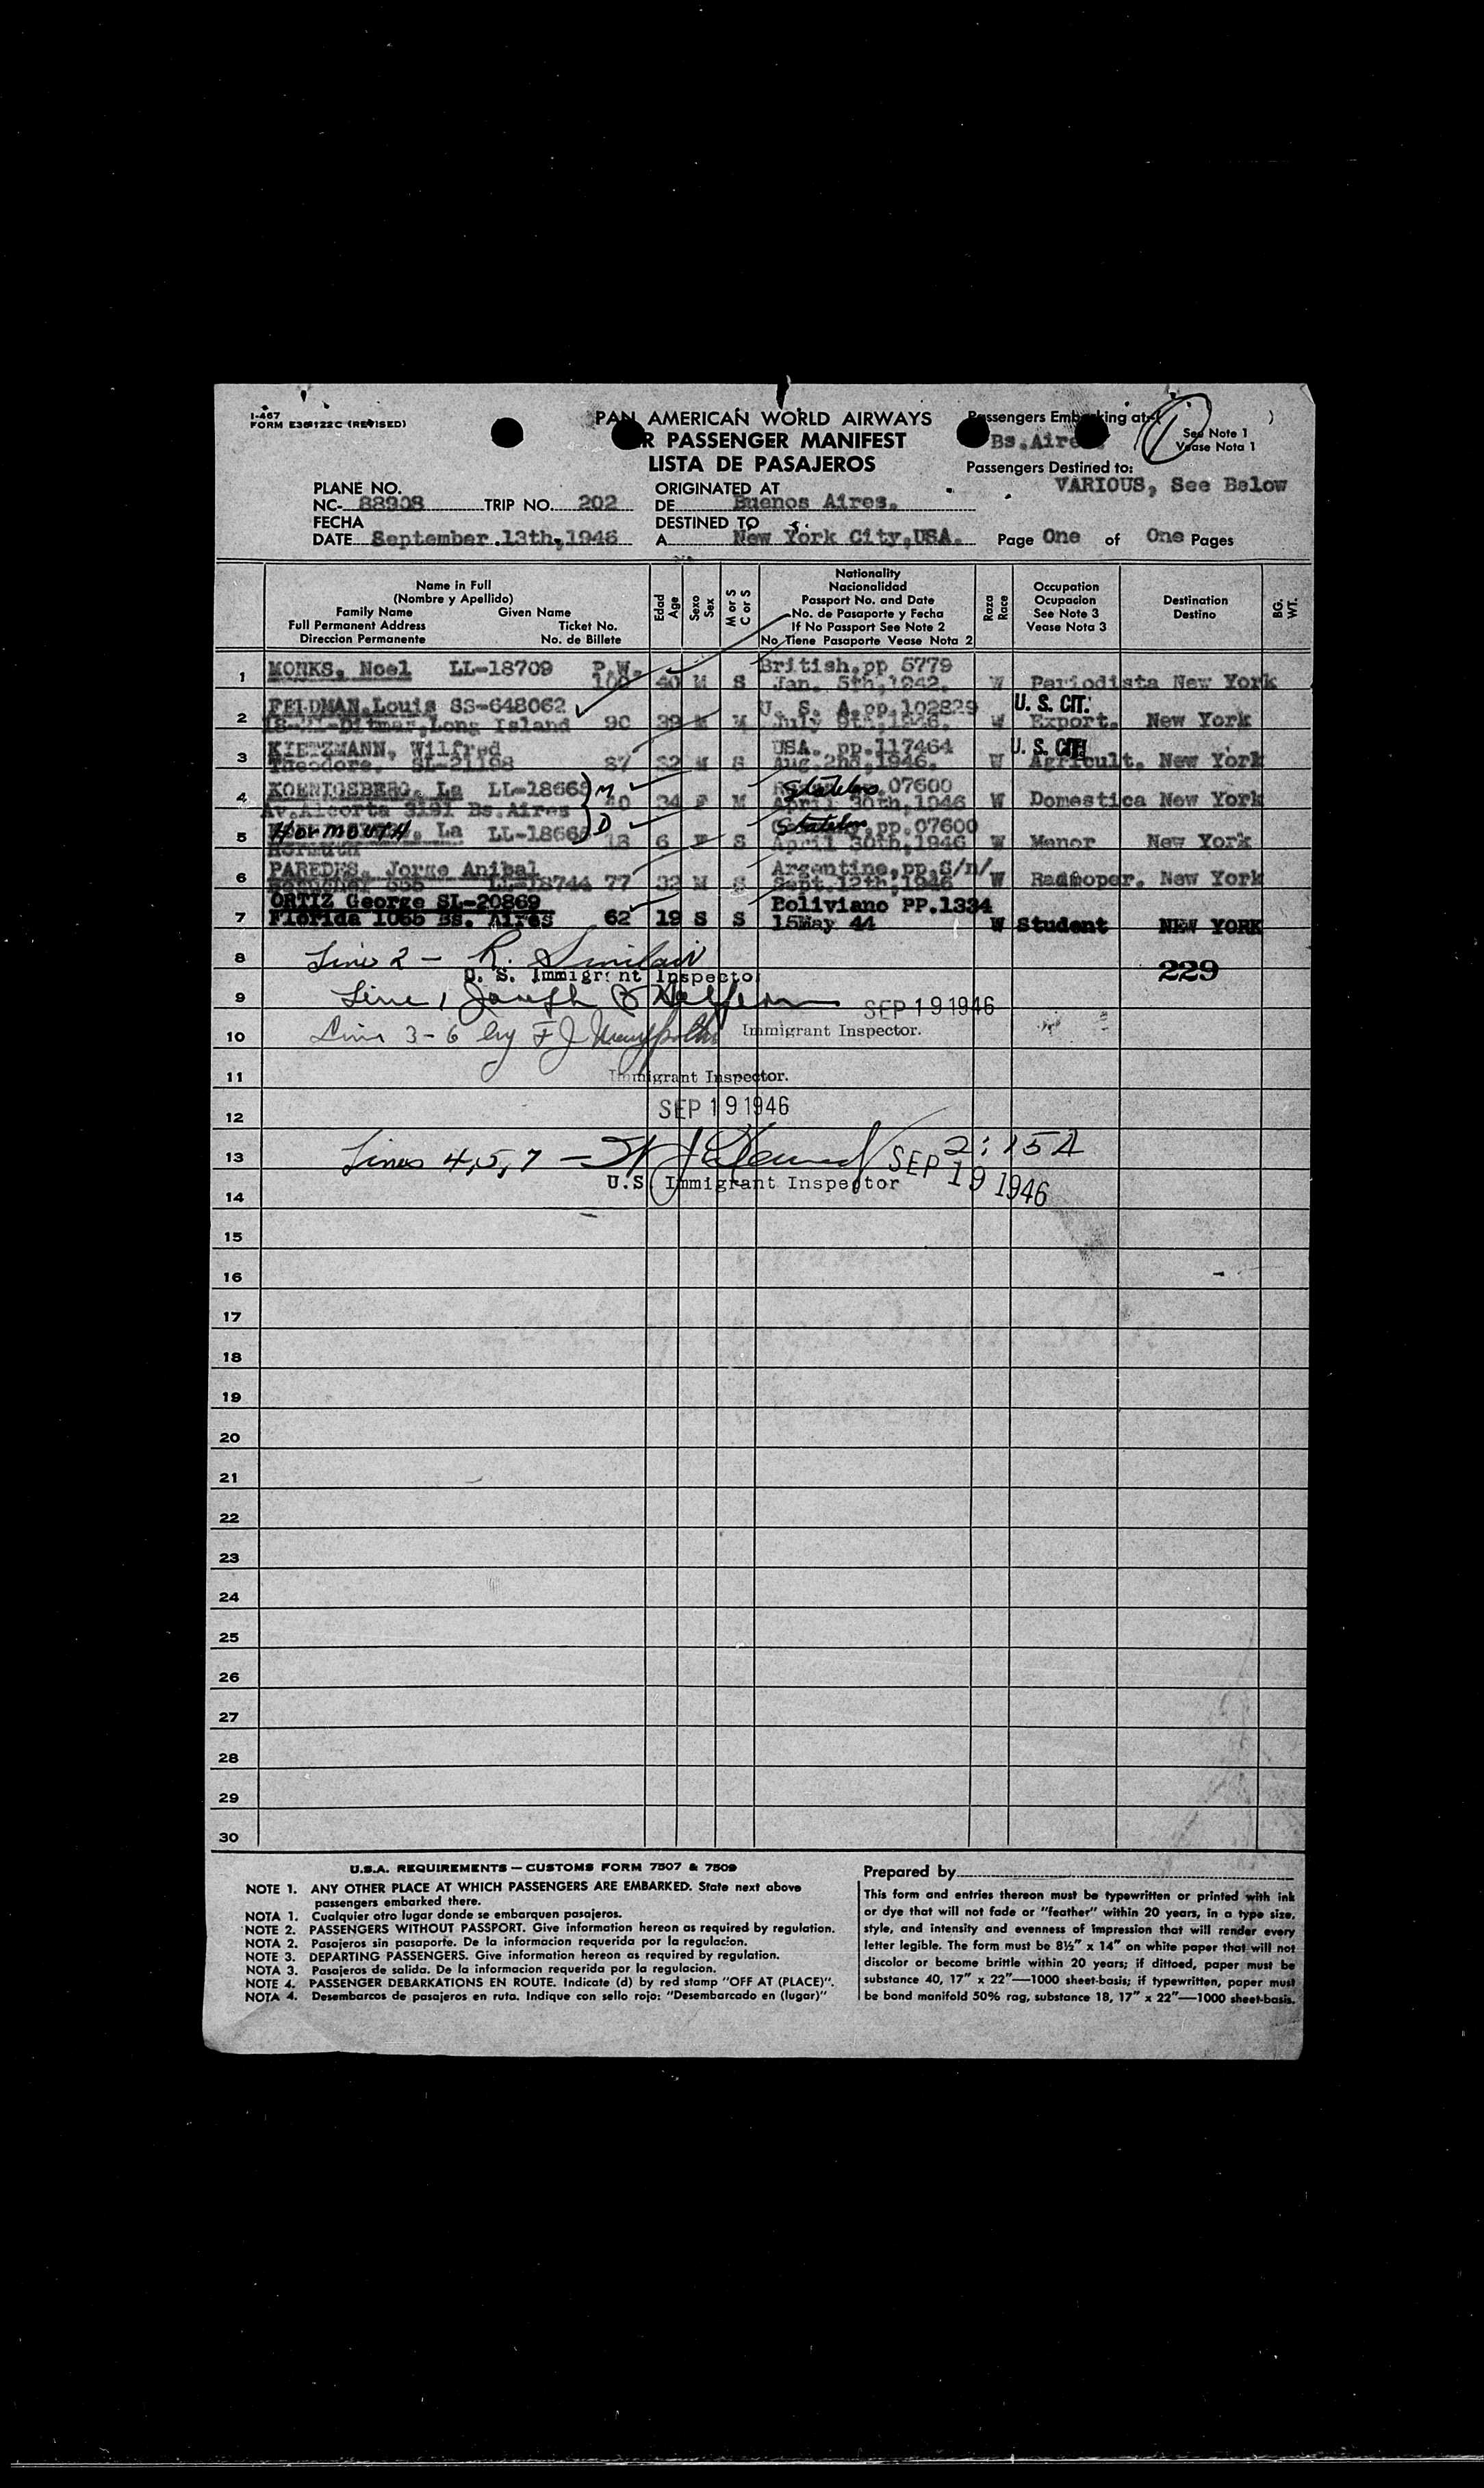 I-467
FORM E38122C (REVISED)
PAN AMERICAN WORLD AIRWAYS
R PASSENGER MANIFEST
LISTA DE PASAJEROS
Passengers Embarking at
Bs.Aire
See Note 1
Vease Nota 1
Passengers Destined to:
VARIOUS, See Below
PLANE NO.
NC- 88908 TRIP NO. 202
FECHA
DATE September 13th,1946
ORIGINATED AT
DE Buenos Aires.
DESTINED TO
A New York City,USA.
Page One of One Pages
Name in Full
(Nombre y Apellido)
Family Name Given Name
Full Permanent Address Ticket No.
Direccion Permanente No. de Billete
Edad
Age
Sexo
Sex
M or S
C or S
Nationality
Nacionalidad
Passport No. and Date
No. de Pasaporte y Fecha
If No Passport See Note 2
No Tiene Pasaporte Vease Nota 2
Raza
Race
Occupation
Ocupacion
See Note 3
Vease Nota 3
Destination
Destino
BG.
WT.
1 MONKS, Noel LL-18709 P.W. British,pp 5779
100 40 M S Jan. 5th,1942. W Periodista New York
2 FELDMAN,Louis SS-648062 U. S. A.pp.102829 U. S. CIT.
Long Island 90 39 M M July 9th,1946. W Export. New York
3 KIETZMANN, Wilfred USA. pp.117464 U. S. CIT.
Theodore. SL-21198 87 32 M S Aug.2nd,1946. W Agricult. New York
4 KOENIGSBERG, La LL-18665 M Stateless 07600
Av.Alcorta 3191 Bs.Aires 34 F M April 30th,1946 W Domestica New York
5 Hormouth La LL-18665 D Stateless pp.07600
Hormuth 18 6 F S April 30th,1946 W Menor New York
6 PAREDES, Jorge Anibal Argentine,pp.S/n/
LL-18744 77 32 M S Sept.12th,1946 W Radioper. New York
7 ORTIZ George SL-20869 Boliviano PP.1334
Florida 1065 Bs. Aires 62 19 S S 15May 44 W Student NEW YORK
8 Line 2 - R. Sinclair 229
U. S. Immigrant Inspector
9 Line 1 Joseph B SEP 19 1946
10 Line 3-6 by F J Immigrant Inspector.
11 Immigrant Inspector.
12 SEP 19 1946
13 Lines 4,5,7 - 2:15A
SEP 19 1946
14 U.S. Immigrant Inspector
15
16
17
18
19
20
21
22
23
24
25
26
27
28
29
30
U.S.A. REQUIREMENTS — CUSTOMS FORM 7507 & 7509
NOTE 1. ANY OTHER PLACE AT WHICH PASSENGERS ARE EMBARKED. State next above
passengers embarked there.
NOTA 1. Cualquier otro lugar donde se embarquen pasajeros.
NOTE 2. PASSENGERS WITHOUT PASSPORT. Give information hereon as required by regulation.
NOTA 2. Pasajeros sin pasaporte. De la informacion requerida por la regulacion.
NOTE 3. DEPARTING PASSENGERS. Give information hereon as required by regulation.
NOTA 3. Pasajeros de salida. De la informacion requerida por la regulacion.
NOTE 4. PASSENGER DEBARKATIONS EN ROUTE. Indicate (d) by red stamp "OFF AT (PLACE)".
NOTA 4. Desembarcos de pasajeros en ruta. Indique con sello rojo: "Desembarcado en (lugar)"
Prepared by
This form and entries thereon must be typewritten or printed with ink
or dye that will not fade or "feather" within 20 years, in a type size,
style, and intensity and evenness of impression that will render every
letter legible. The form must be 8½" x 14" on white paper that will not
discolor or become brittle within 20 years; if dittoed, paper must be
substance 40, 17" x 22"—1000 sheet-basis; if typewritten, paper must
be bond manifold 50% rag, substance 18, 17" x 22"—1000 sheet-basis.